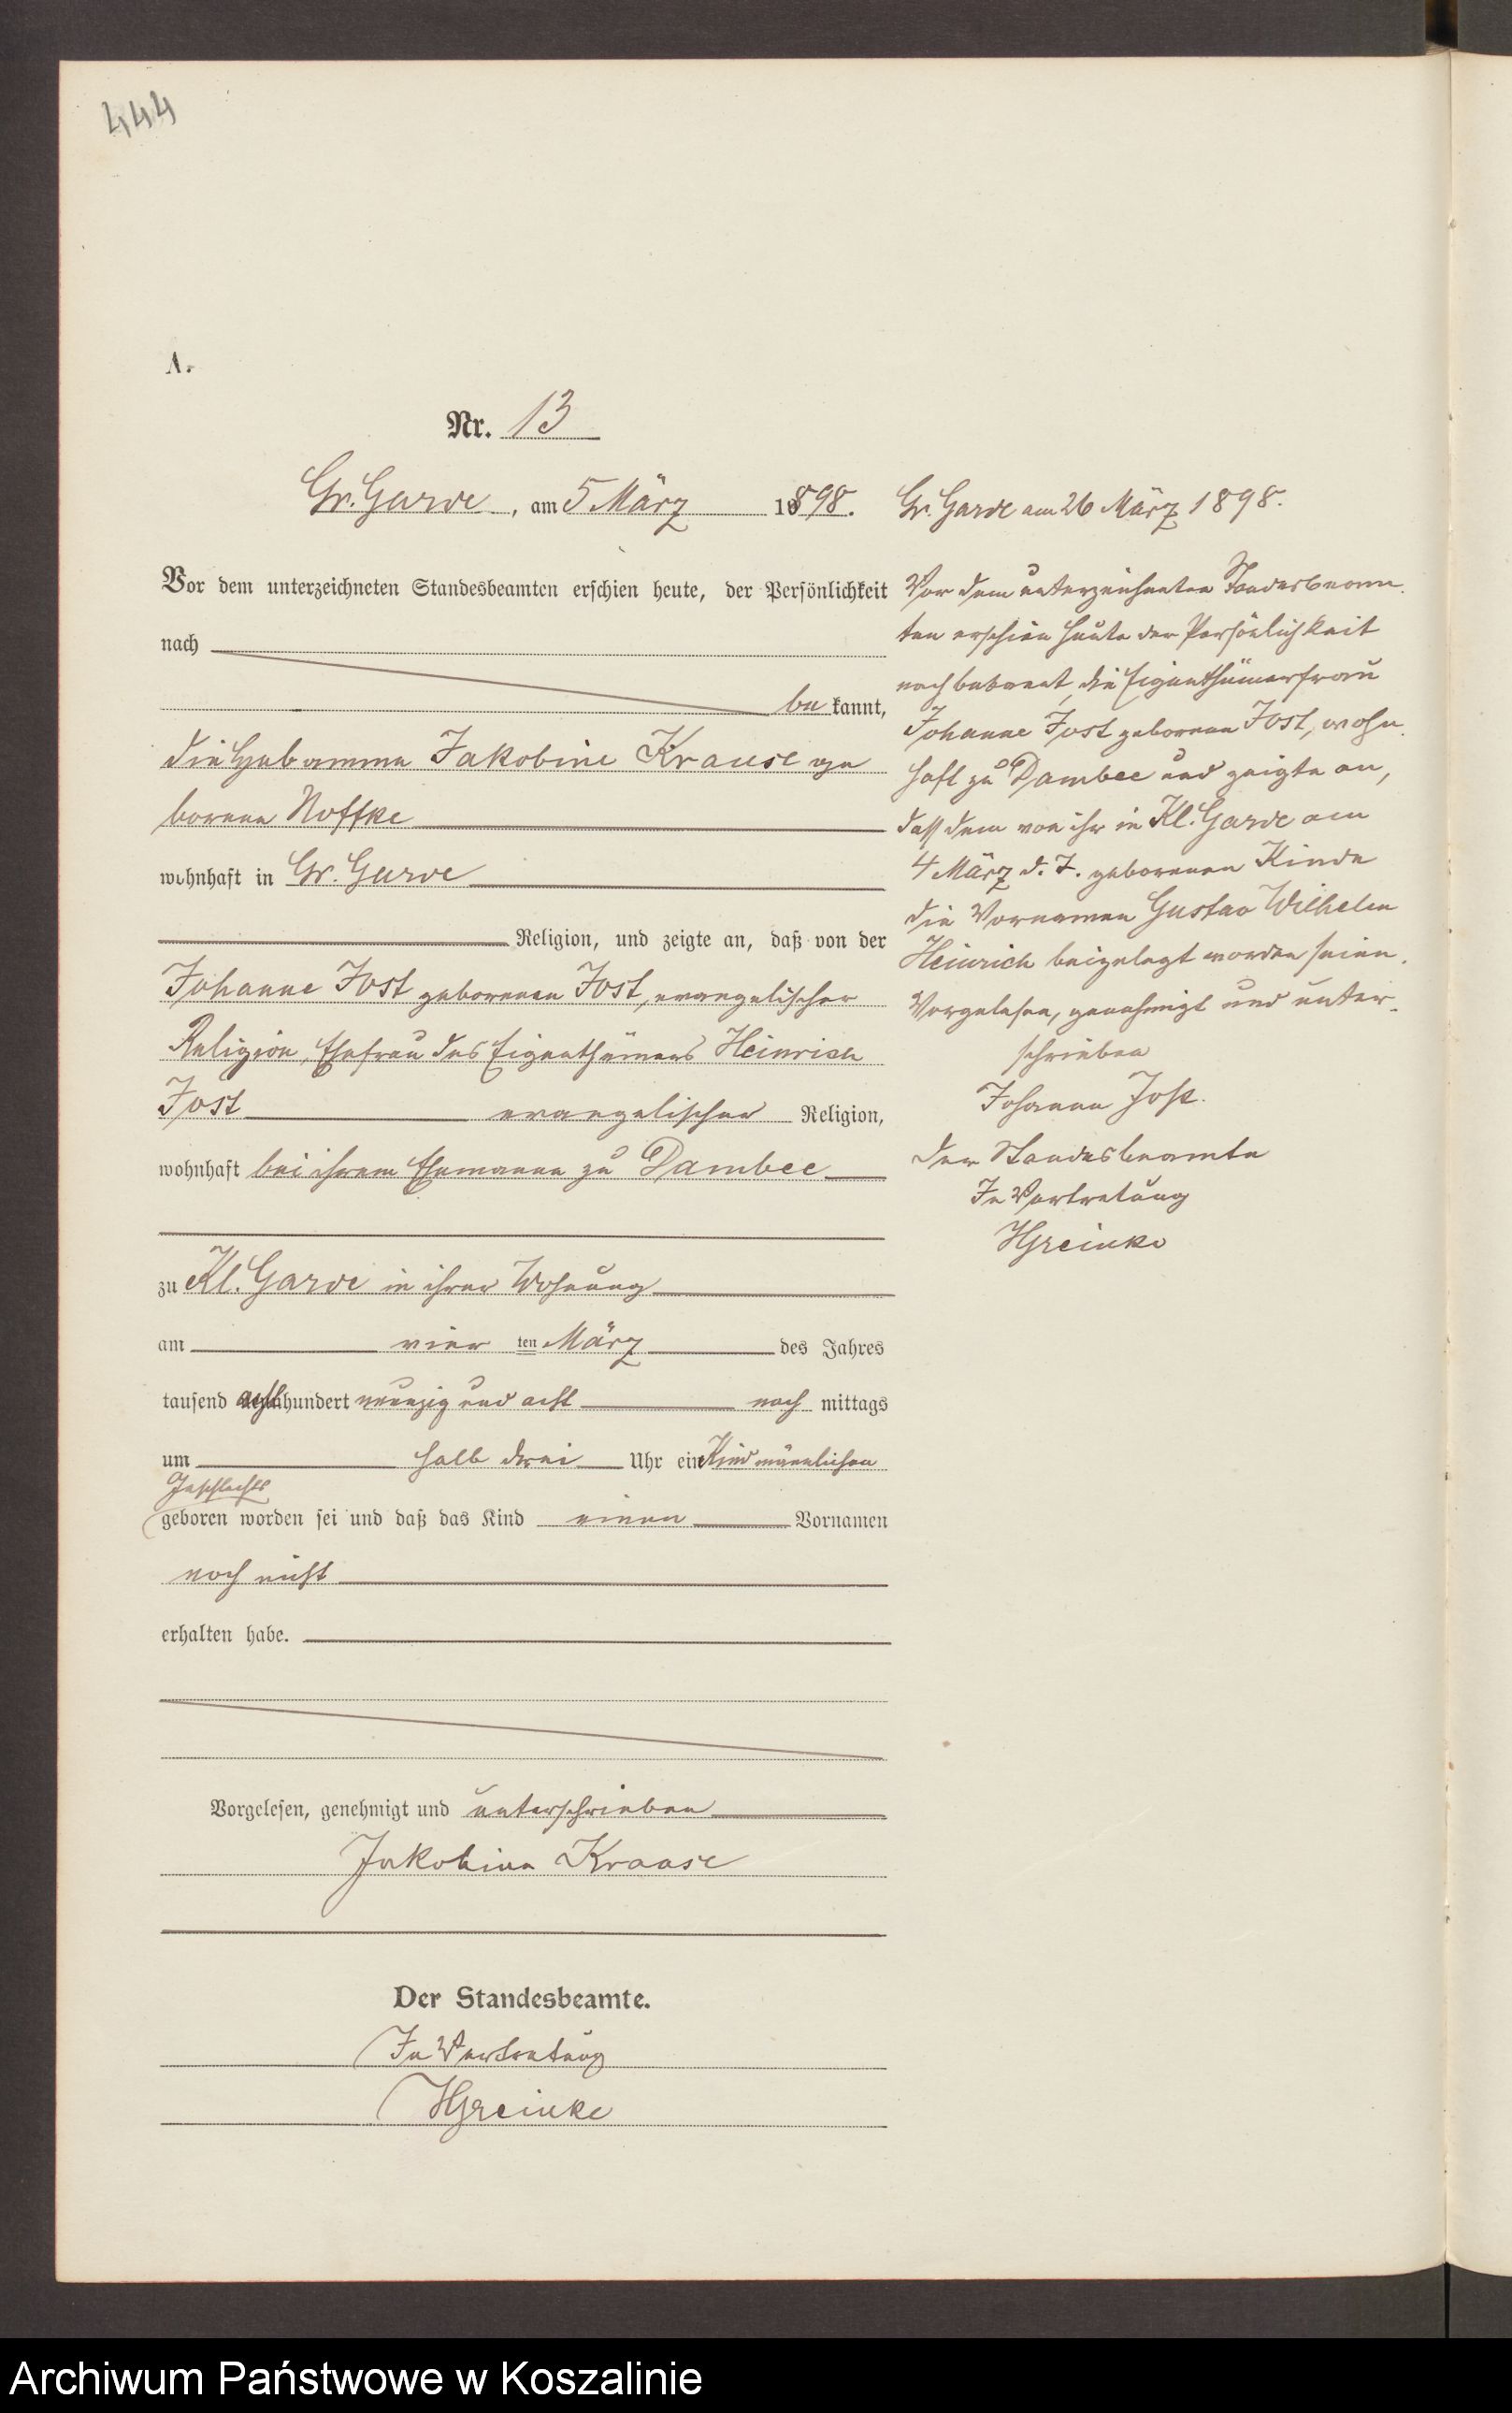 444
A.
Nr. 13
Gr. Garde, am 5 März 1898.
Vor dem unterzeichneten Standesbeamten erschien heute, der Persönlichkeit
nach
be kannt,
die Hebamme Jakobine Krause ge
borene Noffke
wohnhaft in Gr. Garde
Religion, und zeigte an, daß von der
Johanne Jost geborenen Jost, evangelischer
Religion, Ehefrau des Eigenthümers Heinrich
Jost evangelischer Religion,
wohnhaft bei ihrem Ehemanne zu Dambee
zu Kl. Garde in ihrer Wohnung
am vier ten März des Jahres
tausend acht hundert neunzig und acht nach mittags
um halb drei Uhr ein Kind männlichen
Geschlechts
geboren worden sei und daß das Kind einen Vornamen
noch nicht
erhalten habe.
Vorgelesen, genehmigt und unterschrieben
Jakobine Krause
Der Standesbeamte.
In Vertretung
HGreinke
Gr. Garde am 26 März 1898.
Vor dem unterzeichneten Standesbeam-
ten erschien heute der Persönlichkeit
nach bekannt, die Eigenthümerfrau
Johanne Jost geborene Jost, wohn-
haft zu Dambee und zeigte an,
daß dem von ihr in Kl. Garde am
4 März d. J. geborenen Kinde
die Vornamen Gustav Wilhelm
Heinrich beigelegt worden seien.
Vorgelesen, genehmigt und unter-
schrieben
Johanne Jost.
Der Standesbeamte
In Vertretung
HGreinke
Archiwum Państwowe w Koszalinie